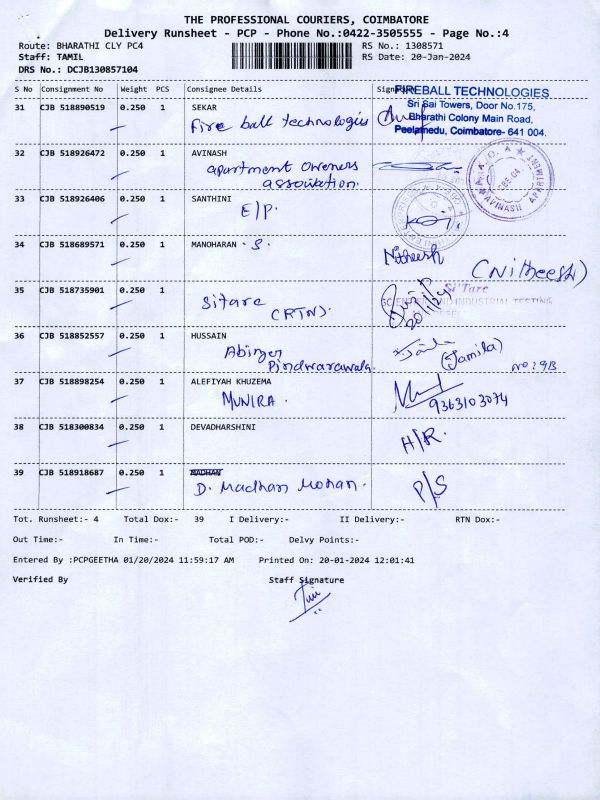 THE PROFESSIONAL COURIERS, COIMBATORE
Delivery Runsheet - PCP - Phone No.:0422-3505555 - Page No.:4
Route: BHARATHI CLY PC4 RS No.: 1308571
Staff: TAMIL RS Date: 20-Jan-2024
DRS No.: DCJB130857104
S No Consignment No Weight PCS Consignee Details
FIREBALL TECHNOLOGIES
Sri Sai Towers, Door No.175,
Bharathi Colony Main Road,
Peelamedu, Coimbatore- 641 004.
31 CJB 518890519 0.250 1 SEKAR
Fire ball technologies
32 CJB 518926472 0.250 1 AVINASH
apartment owners
association.
33 CJB 518926406 0.250 1 SANTHINI
E/P.
34 CJB 518689571 0.250 1 MANOHARAN . S.
Nitheesh
(Nitheesh)
35 CJB 518735901 0.250 1
Sitare
(RTN).
Si'Tarc
SCIENTIFIC AND INDUSTRIAL TESTING
20/1/24
36 CJB 518852557 0.250 1 HUSSAIN
Abinzer
Pindwarawala.
(Jamila)
no: 9B
37 CJB 518898254 0.250 1 ALEFIYAH KHUZEMA
MUNIRA .
9363103074
38 CJB 518300834 0.250 1 DEVADHARSHINI
H/R.
39 CJB 518918687 0.250 1 MADHAN
D. Madhan Mohan.
P/S
Tot. Runsheet:- 4 Total Dox:- 39 I Delivery:- II Delivery:- RTN Dox:-
Out Time:- In Time:- Total POD:- Delvy Points:-
Entered By :PCPGEETHA 01/20/2024 11:59:17 AM Printed On: 20-01-2024 12:01:41
Verified By Staff Signature